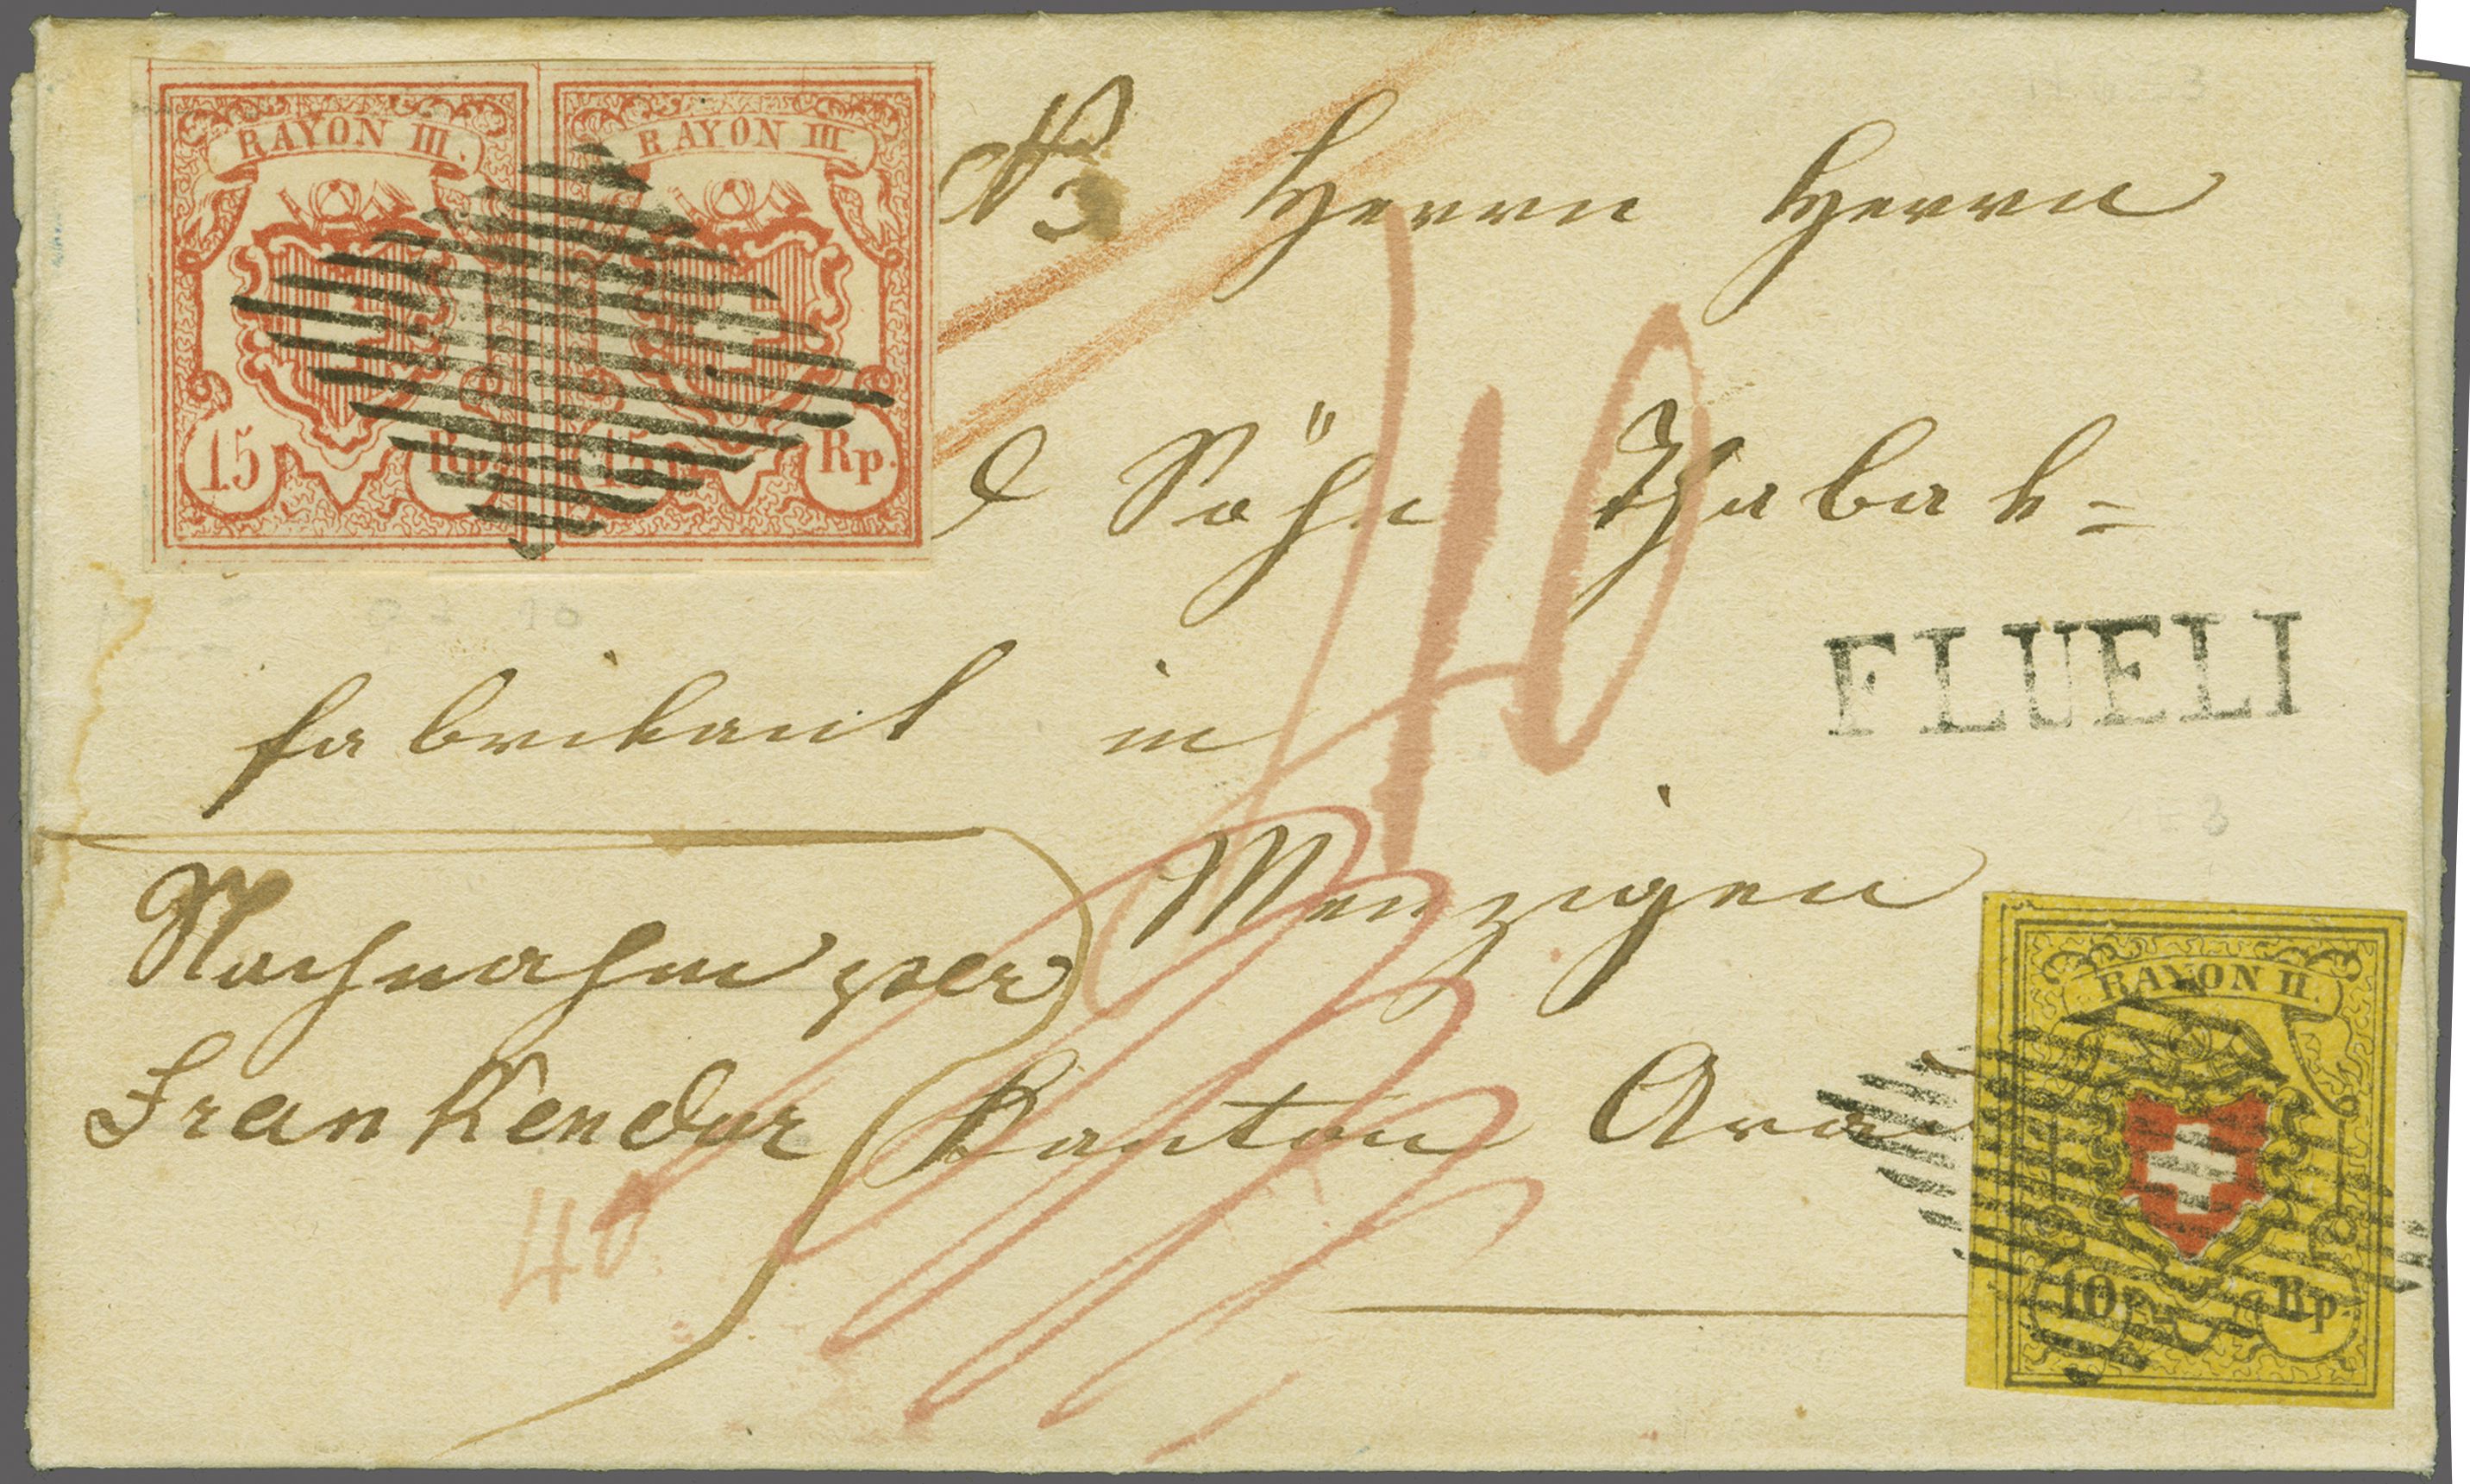 RAYON III. RAYON III.
15 Rp. 15 Rp.
No 3 Herrn Herrn
& Söhn Thabak=
fabrikant in
FLUELI
Menzigen
Nachnahm per
Frankendur
Kanton Ara
40
40
RAYON II.
10 Rp.